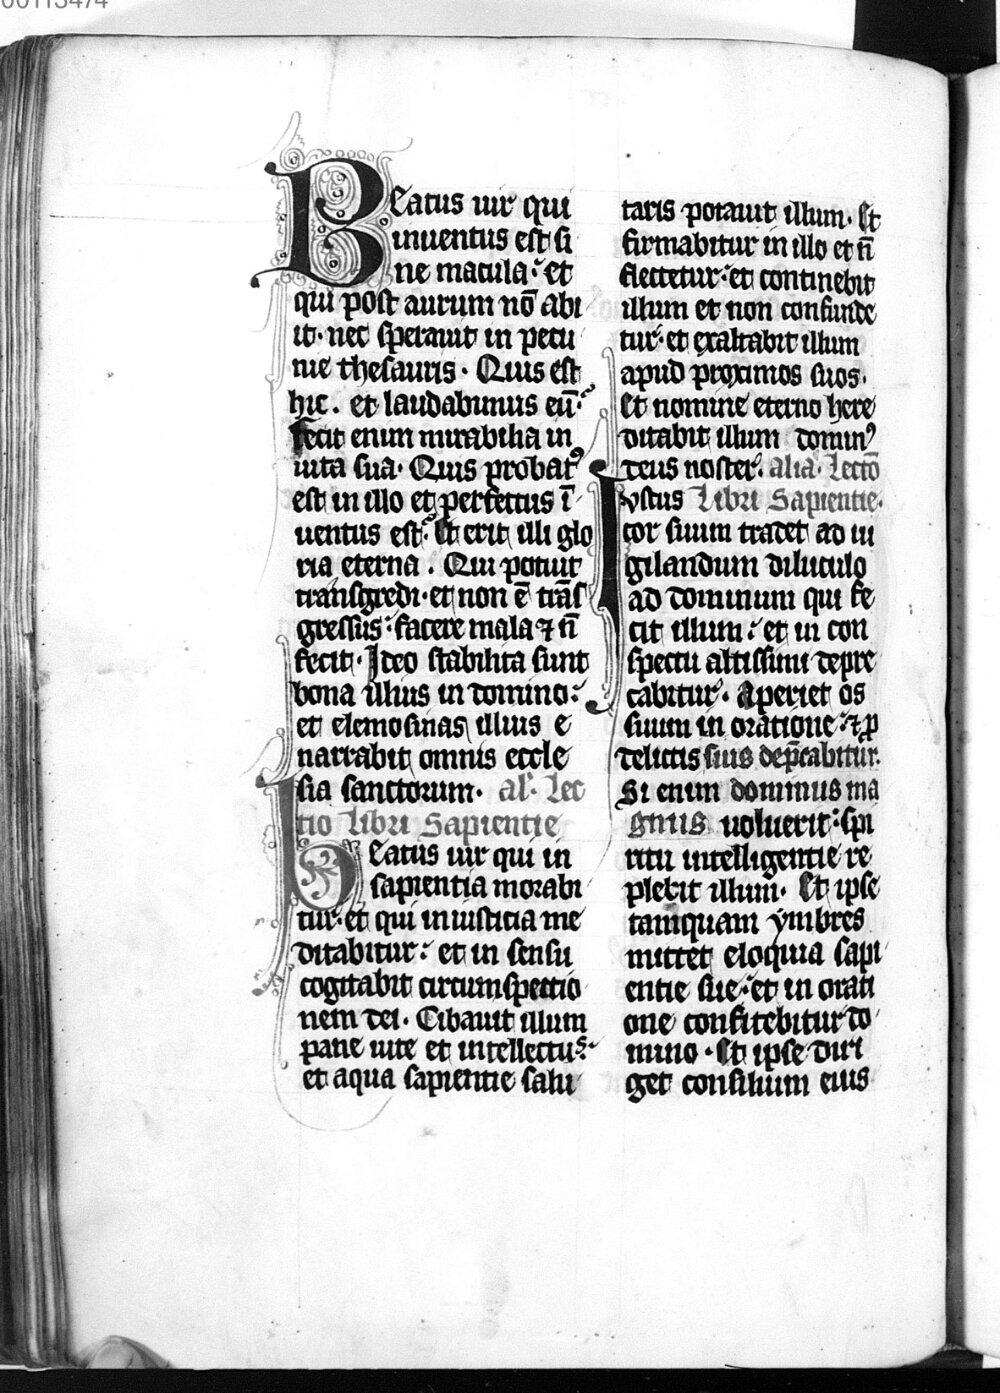 00113474
Beatus uir qui
inuentus est si
ne macula: et
qui post aurum nō abi
it. nec sperauit in pecu
nie thesauris. Quis est
hic. et laudabimus eū:
fecit enim mirabilia in
uita sua. Quis probatꝰ
est in illo et perfectus ī
uentus est: Et erit illi glo
ria eterna. Qui potuit
transgredi. et non ē trās
gressus: facere mala ⁊ n̄
fecit. Ideo stabilita sunt
bona illius in domino:
et elemosinas illius e
narrabit omnis eccle
sia sanctorum. al. Lec
tio Libri Sapientie
Beatus uir qui in
sapientia morabi
tur. et qui in iusticia me
ditabitur: et in sensu
cogitabit circumspectio
nem dei. Cibauit illum
pane uite et intellectus:
et aqua sapientie salu
taris potauit illum. Et
firmabitur in illo et n̄
flectetur: et continebit
illum et non confunde
tur. et exaltabit illum
apud proximos suos.
Et nomine eterno here
ditabit illum dominꝰ
deus noster. alia. Lectō
Iystus Libri Sapientie.
cor suum tradet ad ui
gilandum diluculo
ad dominum qui fe
cit illum: et in con
spectu altissimi depre
cabitur. Aperiet os
suum in oratione: ⁊ ꝑ
delictis suis dep̄cabitur.
Si enim dominus ma
gnus uoluerit: spi
ritu intelligentie re
plebit illum. Et ipse
tamquam ymbres
mittet eloquia sapi
entie sue: et in orati
one confitebitur do
mino. Et ipse diri
get consilium eius